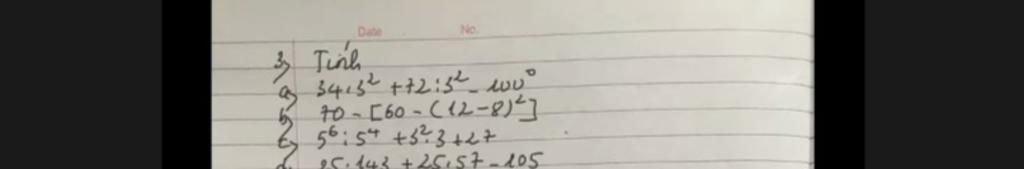 Date No.
3) Tính
a) 34.3² + 72:3² - 100⁰
b) 70 - [60 - (12-8)²]
c) 5⁶:5⁴ + 3².3 + 27
25.143 + 25.57 - 105